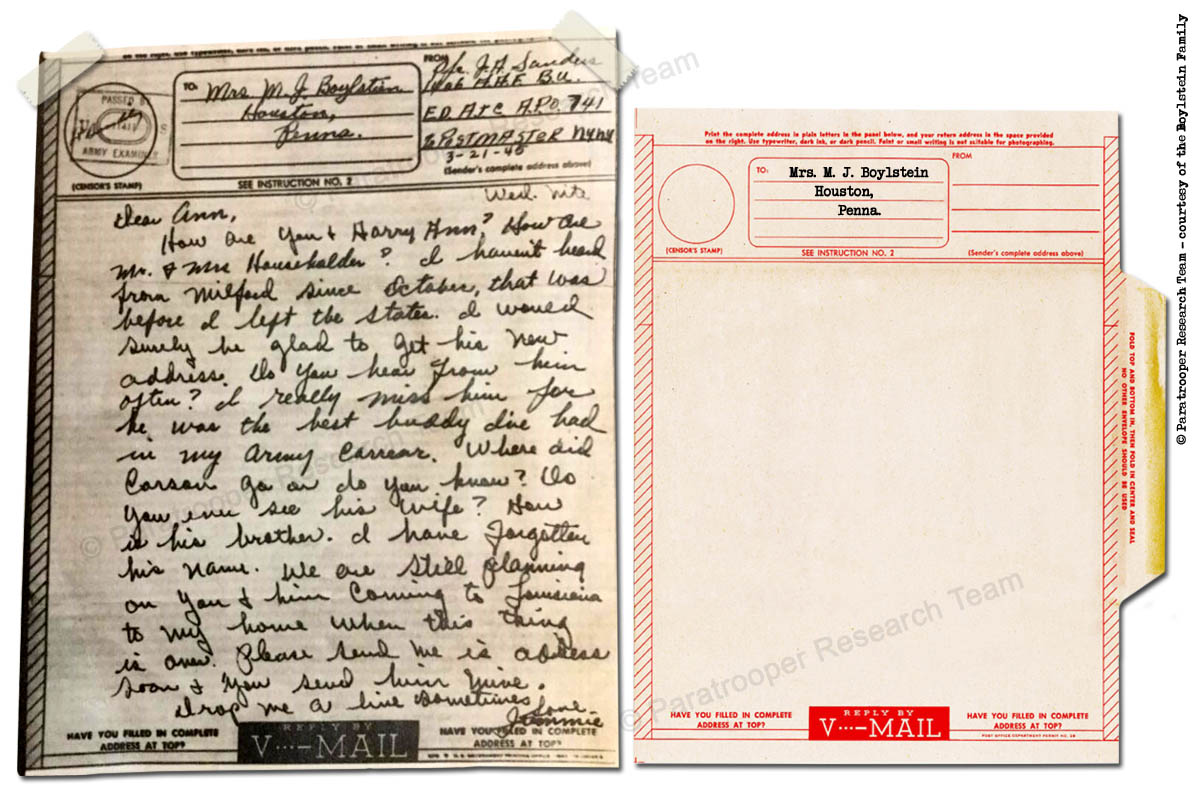 on the right. Use typewriter, dark ink, or dark pencil. Faint or small writing is not suitable for photographing.
PASSED BY
ARMY EXAMINER
(CENSOR'S STAMP)
TO: Mrs. M. J. Boylstein
Houston,
Penna.
SEE INSTRUCTION NO. 2
FROM
Pfc. J. A. Sanders
A.A.F. B.U.
E.D. ATC A.P.O. 741
% POSTMASTER N.Y. N.Y.
3-21-45
(Sender's complete address above)
Wed. Nite
Dear Ann,
How are you & Harry Ann? How are
Mr. & Mrs Householder? I haven't heard
from Milford since October, that was
before I left the States. I would
surely be glad to get his new
address. Do you hear from him
often? I really miss him for
he was the best buddy I've had
in my Army Carrear. Where did
Carson go or do you know? Do
you ever see his wife? How
is his brother. I have forgotten
his name. We are still planning
on you & him coming to Louisiana
to my home when this thing
is over. Please send me is address
soon & you send him mine.
Drop me a line sometimes
Love-
Jimmie
HAVE YOU FILLED IN COMPLETE
ADDRESS AT TOP?
REPLY BY
V···–MAIL
HAVE YOU FILLED IN COMPLETE
ADDRESS AT TOP?
Print the complete address in plain letters in the panel below, and your return address in the space provided
on the right. Use typewriter, dark ink, or dark pencil. Faint or small writing is not suitable for photographing.
(CENSOR'S STAMP)
TO: Mrs. M. J. Boylstein
Houston,
Penna.
SEE INSTRUCTION NO. 2
FROM
(Sender's complete address above)
FOLD TOP AND BOTTOM IN, THEN FOLD IN CENTER AND SEAL
NO OTHER ENVELOPE SHOULD BE USED
HAVE YOU FILLED IN COMPLETE
ADDRESS AT TOP?
REPLY BY
V···–MAIL
HAVE YOU FILLED IN COMPLETE
ADDRESS AT TOP?
POST OFFICE DEPARTMENT PERMIT NO.
© Paratrooper Research Team
© Paratrooper Research Team
© Paratrooper Research Team
© Paratrooper Research Team – courtesy of the Boylstein Family